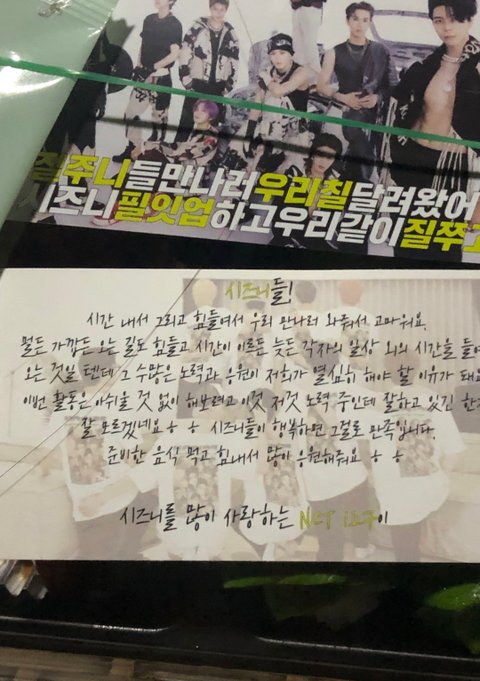 질주니들만나러우리칠달려왔어
시즈니필잇업하고우리같이질주
시즈니들!
시간 내서 그리고 힘들여서 우리 만나러 와줘서 고마워요.
멀든 가깝든 오는 길도 힘들고 시간이 이르든 늦든 각자의 일상 외의 시간을 들여
오는 것일 텐데 그 수많은 노력과 응원이 저희가 열심히 해야 할 이유가 돼요
이번 활동은 아쉬울 것 없이 해보려고 이것 저것 노력 중인데 잘하고 있긴 한
잘 모르겠네요 ㅎ ㅎ 시즈니들이 행복하면 그걸로 만족입니다.
준비한 음식 먹고 힘내서 많이 응원해줘요 ㅎ ㅎ
시즈니를 많이 사랑하는 NCT 127이